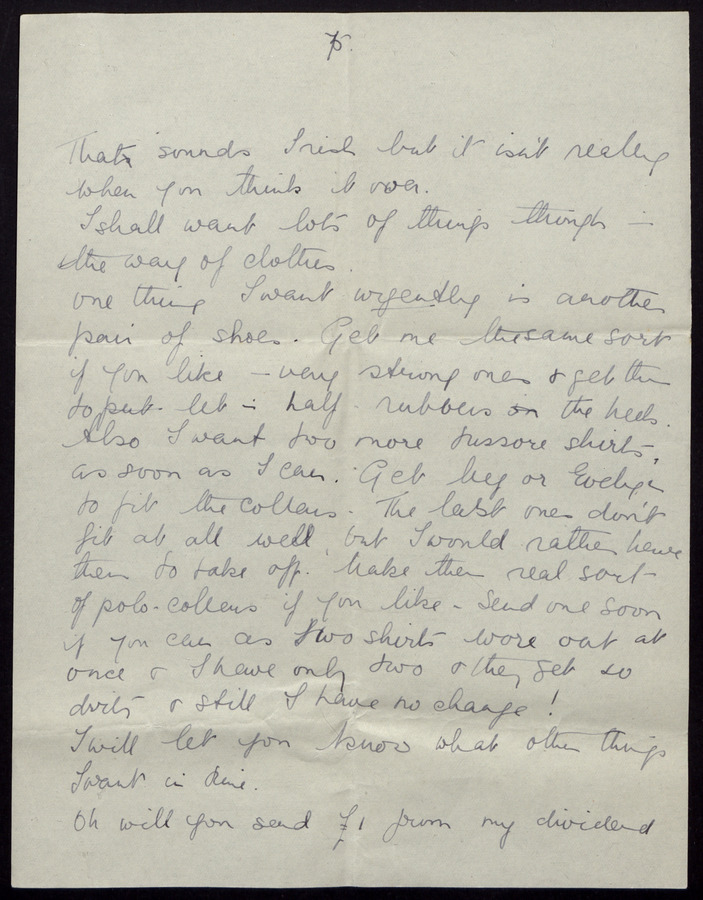 75.
That's sounds Irish but it isn't really
when you think it over.
I shall want lots of things though in
the way of clothes.
one thing I want urgently is another
pair of shoes. Get me the same sort
if you like – very strong ones & get them
to put let in half rubbers on the heels.
Also I want two more tussore shirts,
as soon as I can. Get Meg or Evelyn
to fit the collars. The last ones don't
fit at all well, but I would rather have
them to take off. Make them real sort
of polo-collars if you like – Send one soon
if you can as two shirts wore out at
once & I have only two & they get so
dirty & still I have no change!
I will let you know what other things
I want in time.
Oh will you send £1 from my dividend